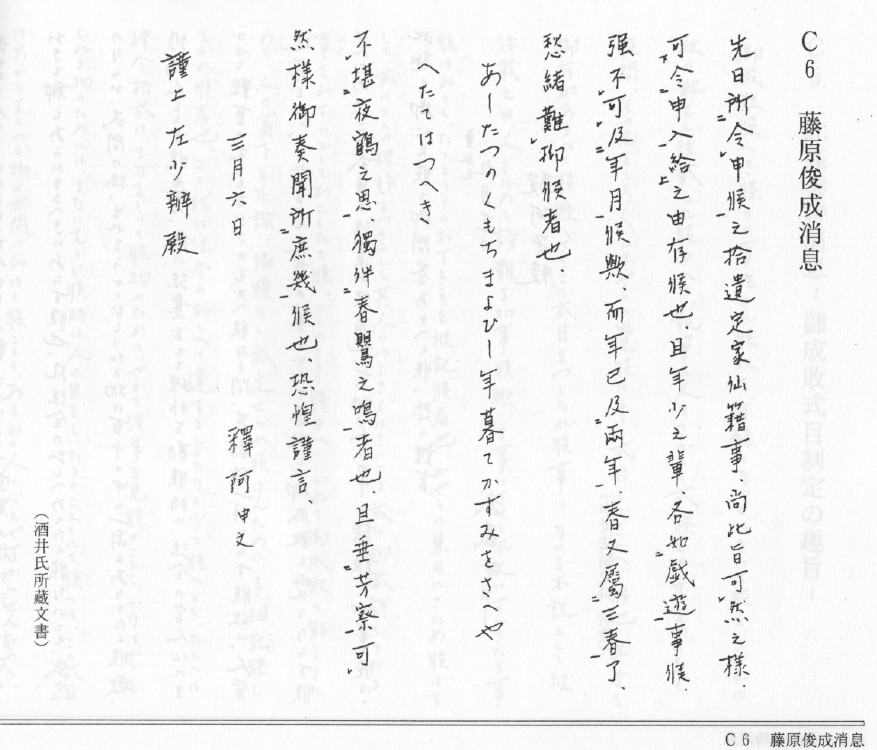 C6 藤原俊成消息
先日所令申候之拾遺定家仙籍事、尚此旨可然之様、
可令申入給之由存候也、且年少之輩、各如戯遊事候、
强不可及年月候歟、而年已及兩年、春又屬三春了、
愁緒難抑候者也、
あしたつのくもちまよひし年暮てかすみをさへや
へたてはつへき
不堪夜鶴之思、獨伴春鶯之鳴者也、且垂芳察可
然樣御奏聞所庶幾候也、恐惶謹言、
三月六日
釋阿申文
謹上 左少辨殿
（酒井氏所藏文書）
C6 藤原俊成消息